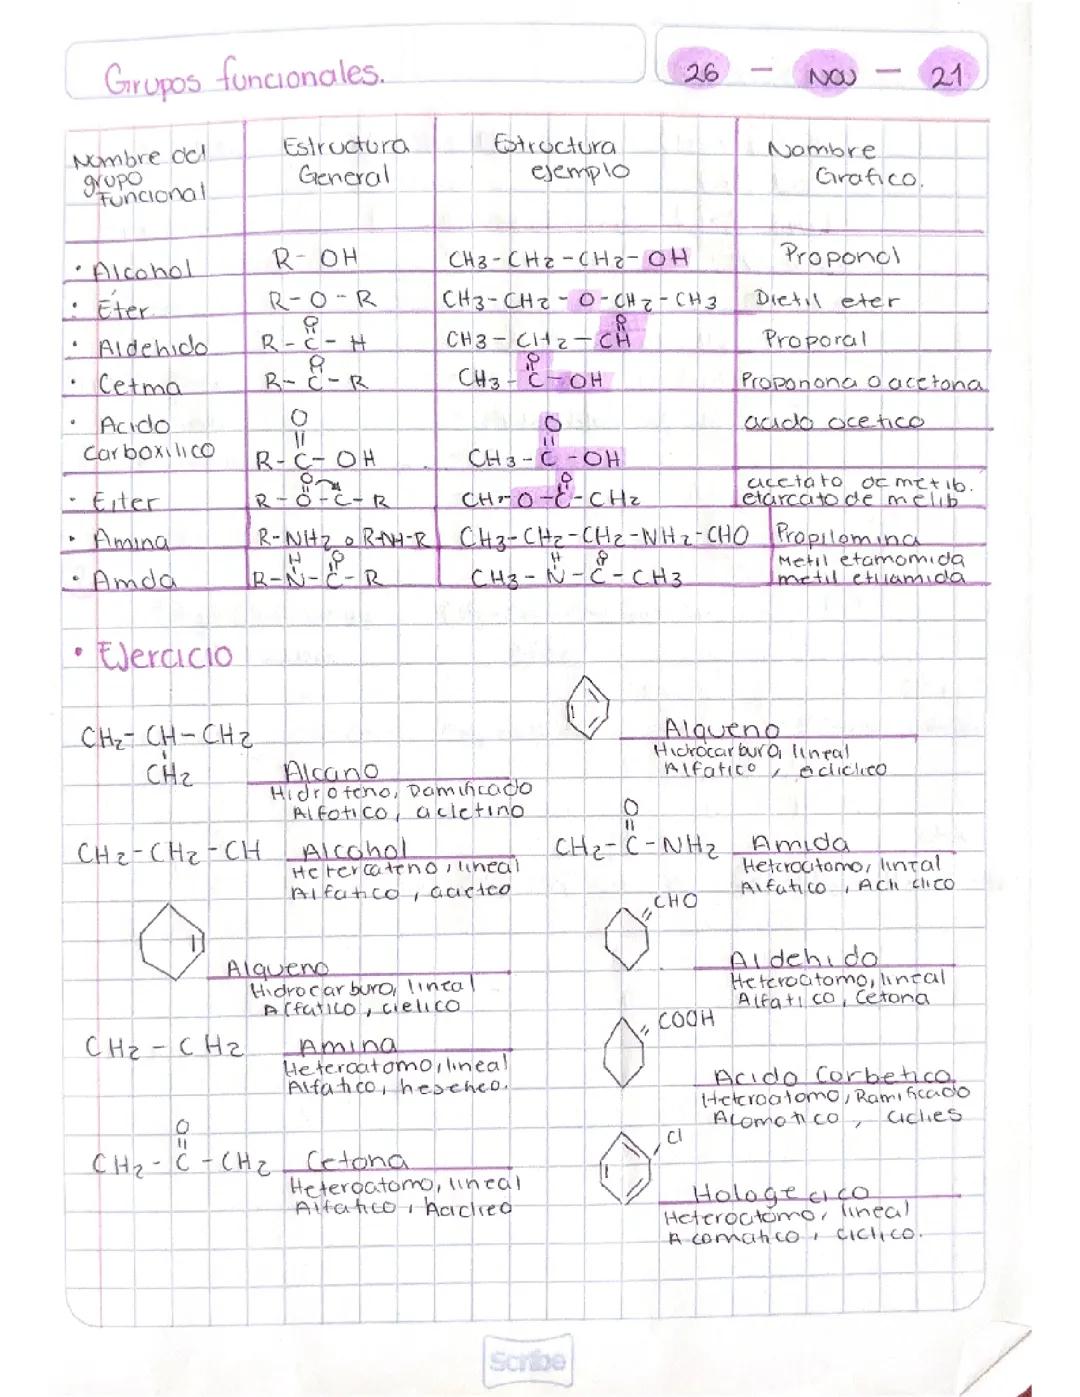 Grupos funcionales.
26 - Nov - 21
Nombre del grupo Funcional
Estructura General
Estructura ejemplo
Nombre Grafico.
• Alcohol R - OH CH3-CH2-CH2-OH Proponol
• Éter R-O-R CH3-CH2-O-CH2-CH3 Dietil eter
• Aldehido R-C-H CH3-CH2-CH Proporal
• Cetma R-C-R CH3-C-OH Proponona o acetona
• Acido Carboxilico
O
||
R-C-OH
O
||
CH3-C-OH
acido acetico
• Eiter R-O-C-R CH-O-C-CH2
acetato de metib.
etarcato de melib
• Amina R-NH2 o R-NH-R CH3-CH2-CH2-NH2-CHO Propilomina
• Amda R-N-C-R CH3-N-C-CH3
Metil etamomida
metil etilamida
• Ejercicio
CH2-CH-CH2
CH2
Alcano
Hidroteno, Damificado
Alfotico, acletino
Alqueno
Hidrocarburo, lineal
Alfatico, aciclico
CH2-CH2-CH Alcohol
Hetercateno, lineal
Alfatico, acictco
O
||
CH2-C-NH2 Amida
Heteroatomo, lintal
Alfatico, Achclico
Alqueno
Hidrocarburo, lineal
Alfatico, cielico
CHO
Aldehido
Heteroatomo, lineal
Alfatico, Cetona
CH2-CH2 Amina
Heteroatomo, lineal
Alfatico, heseheo.
COOH
Acido Corbetico
Heteroatomo, Ramificado
Alomotico, Ciclies
O
||
CH2-C-CH2 Cetona
Heteroatomo, lineal
Alfatico, Aciclico
Cl
Hologecico
Heteroatomo, lineal
Acomatico, ciclico.
Scribe